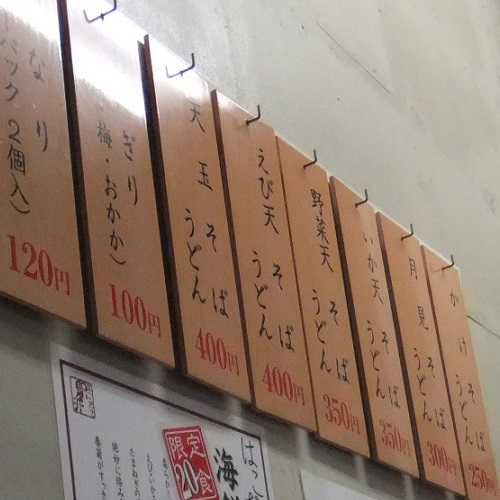 なり
パック 2個入)
120円
ぎり
梅・おかか)
100円
天玉 そば
うどん
400円
えび天 そば
うどん
400円
野菜天 そば
うどん
350円
いか天 そば
うどん
350円
月見 そば
うどん
300円
かけ そば
うどん
250円
限定
20食
はっ
海